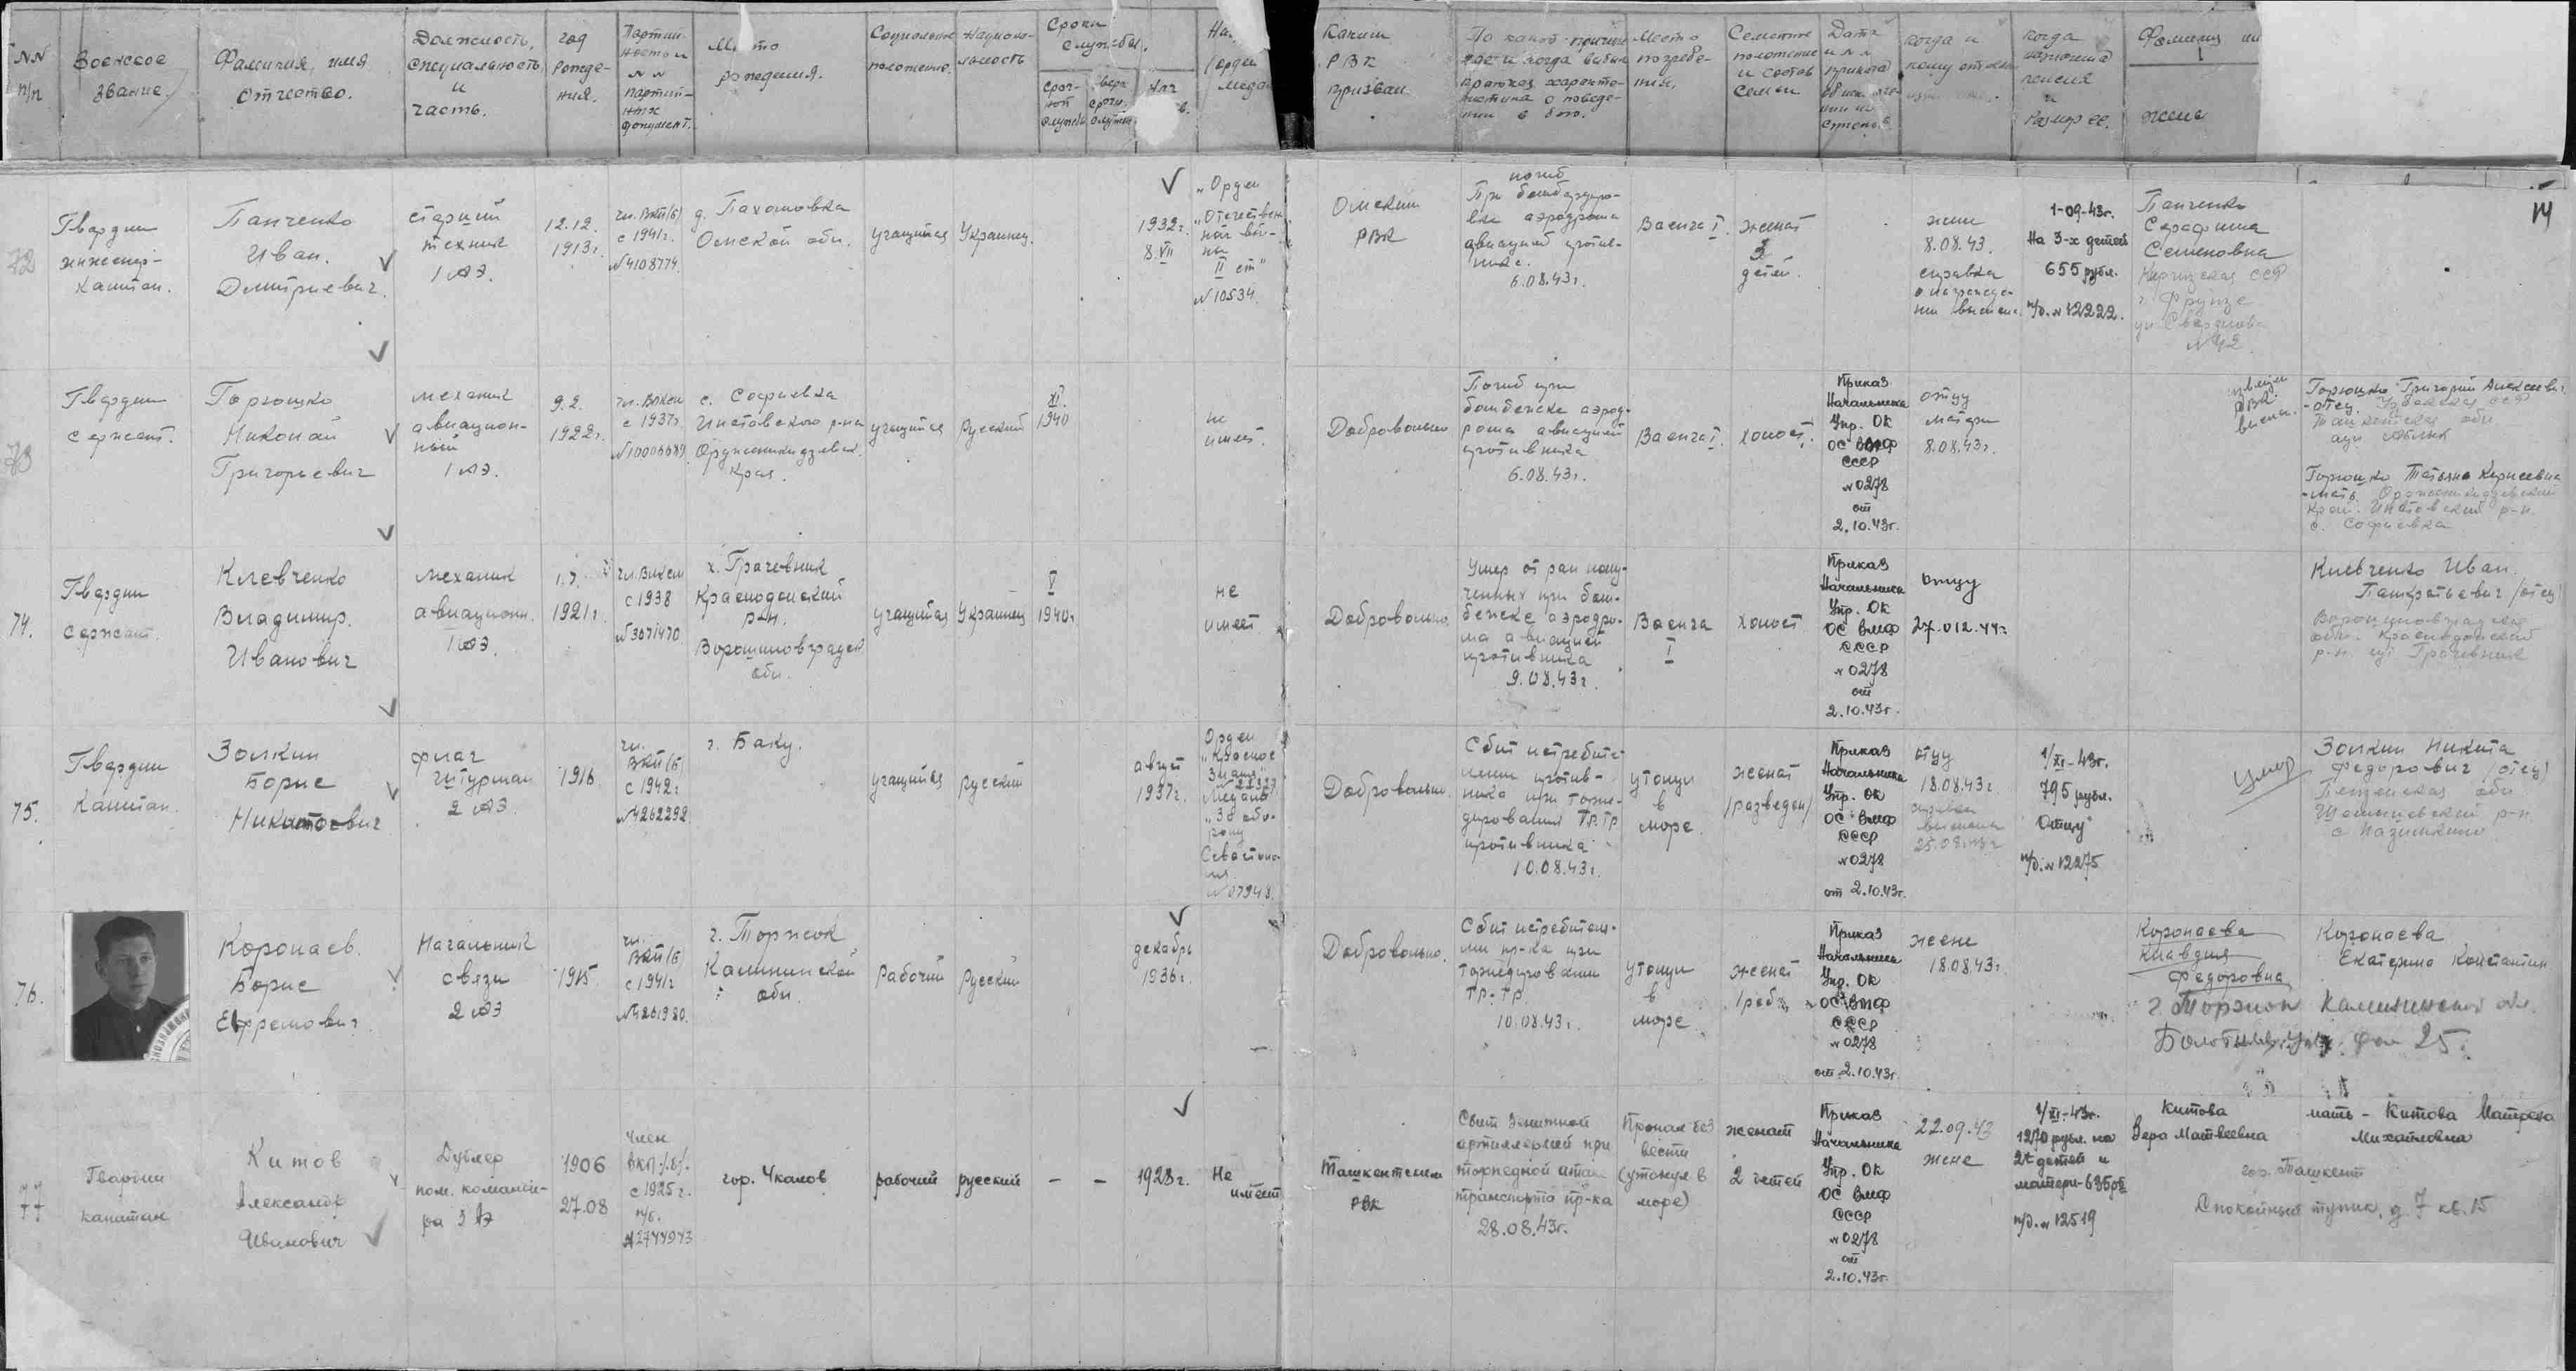 NN
п/п
Военское
звание.
Фамилия, имя
отчество.
Должность,
специальность
и
часть.
год
рожде-
ния.
Партий-
ность и
NN
партий-
ных
документ.
Место
рождения.
Социальное
положение.
Националь-
ность
Сроки
службы.
сроч-
ной
службы
Каким
РВК
призван
По какой причине
где и когда выбыл
краткая характе-
ристика о поведе-
нии в бою.
Место
погребе-
ния.
Семейное
положение
и состав
семьи
Дата
и NN
приказа
об исключе-
нии из
списков
когда и
кому
когда
назначена
пенсия
и
размер ее.
Фамилия
жена
14
72
Гвардии
инженер-
капитан.
Панченко
Иван.
Дмитриевич.
старший
техник
1 АЭ.
12.12.
1913г.
чл. ВКП(б)
с 1941г.
N4108774.
д. Пахомовка
Омской обл.
учащийся
Украинец.
1932г.
8.VII
"Орден
"Отечествен
ной вой-
ны
II ст"
N10534.
Омским
РВК
погиб
При бомбардиро-
вке аэродрома
авиацией против-
ника.
6.08.43г.
Ваенга I.
женат
3
детей.
жене
8.08.43.
справка
о награжде-
нии выслана.
1-09-43г.
На 3-х детей
655 рубл.
п/д. N 12222.
Панченко
Серафима
Семеновна
Киргизская ССР
г. Фрунзе
ул. Свердлова
N 42
73
Гвардии
сержант.
Горюшко
Николай
Григорьевич
механик
авиацион-
ный
1 АЭ.
9.2.
1922г.
чл. ВЛКСМ
с 1937г.
N10006689
с. Софиевка
Ипатовского р-на
Орджоникидзевск.
Края.
учащийся
Русский
XI.
1940
не
имеет.
Добровольно
Погиб при
бомбежке аэрод-
рома авиацией
противника
6.08.43г.
Ваенга I.
холост.
Приказ
Начальника
Упр. ОК
ОС ВМФ
СССР
N 0278
от
2.10.43г.
отцу
матери
8.08.43г.
РВК
Горюшко Григорий Алексеевич
-отец. Узбекская ССР
Горюшко Татьяна
-мать. Орджоникидзевский
край. Ипатовский р-н.
с. Софиевка
74.
Гвардии
Сержант.
Клевченко
Владимир.
Иванович
механик
авиационн.
1 АЭ.
1921г.
чл. ВЛКСМ
с 1938
N3071470
х. Грачевник
Краснодонский
р-н.
Ворошиловградск
обл.
учащийся
Украинец
V
1940г.
не
имеет
Добровольно.
Умер от ран полу-
ченных при бом-
бежке аэродро-
ма авиацией
противника
9.08.43г.
Ваенга
I
холост
Приказ
Начальника
Упр. ОК
ОС ВМФ
СССР
N 0278
от
2.10.43г.
отцу
27.012.44г.
Клевченко Иван
Панкратьевич /отец/
Ворошиловградская
обл. Краснодонский
р-н. Грачевник
75.
Гвардии
Капитан.
Золкин
Борис
Никитович
флаг
штурман
2 АЭ
1916
чл.
ВКП(б)
с 1942г
N4262292
г. Баку.
учащийся
Русский
август
1937г.
Орден
"Красное
Знамя"
Медаль
"За обо-
рону
Севастопо-
ля
N 07948
Добровольно.
Сбит истребите-
лями против-
ника при торпе-
дировании Тр.Тр
противника
10.08.43г.
утонул
в
море.
женат
/разведен/
Приказ
Начальника
Упр. ОК
ОС ВМФ
СССР
N 0278
от 2.10.43г.
отцу
18.08.43г.
справка
выслана
25.08.43г
1/XI-43г.
795 рубл.
Отцу
п/д. N 12275
умер
Золкин Никита
Федорович /отец/
Пензенская обл
Шемышевский р-н.
76.
Коропаев.
Борис
Ефремович.
Начальник
связи
2 АЭ
1915
чл.
ВКП(б)
с 1941г
N4261980.
г. Торжок
Калининской
обл.
Рабочий
Русский
декабрь
1936г.
Добровольно.
Сбит истребителя-
ми пр-ка при
торпедировании
ТР-ТР.
10.08.43г.
утонул
в
море.
женат
1 реб.
Приказ
Начальника
Упр. ОК
ОС ВМФ
СССР
N 0278
от 2.10.43г.
жене
18.08.43г.
Коропаева
Клавдия
Федоровна
Коропаева
Екатерина Константин
г. Торжок Калининской обл.
дом 25.
77
Гвардии
капитан
Китов
Александр
Иванович
Дублер
пом. команди-
ра 3 АЭ
1906
27.08
Член
ВКП/б/.
с 1925г.
п/б.
N2744943
гор. Чкалов
рабочий
русский
-
-
1928г.
Не
имеет
Ташкентским
РВК
Сбит зенитной
артиллерией при
торпедной атаке
транспорта пр-ка
28.08.43г.
Пропал без
вести
(утонул в
море)
женат
2 детей
Приказ
Начальника
Упр. ОК
ОС ВМФ
СССР
N 0278
от
2.10.43г.
22.09.43
жене
1/XI-43г.
1270 рубл. на
2х детей и
матери-635рб
п/д. N 12519
Китова
Вера Матвеевна
мать - Китова Матрена
Михайловна
гор. Ташкент
Спокойный тупик, д. 7 кв. 15